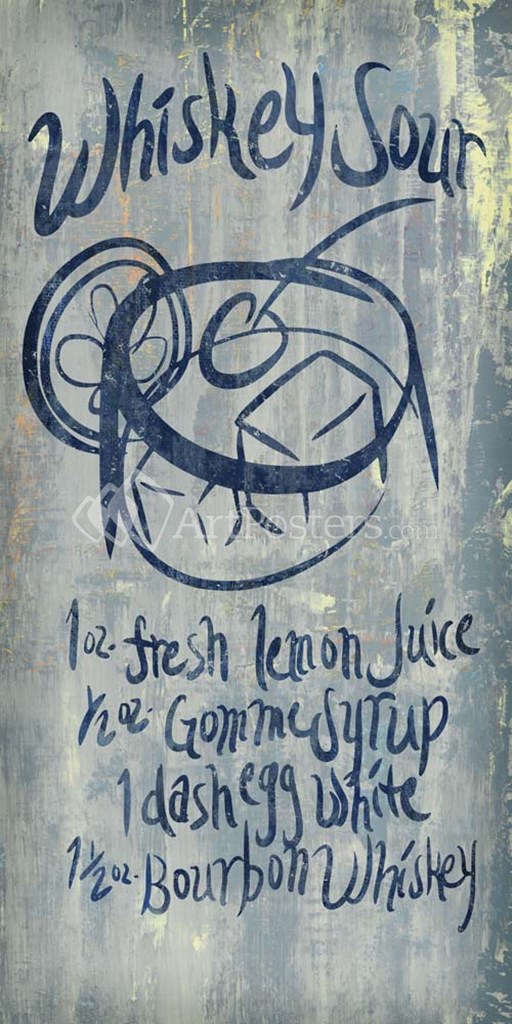 Whiskey Sour
ArtPosters.com
1 oz. fresh lemon Juice
1/2 oz. Gomme Syrup
1 dash egg White
1 1/2 oz. Bourbon Whiskey